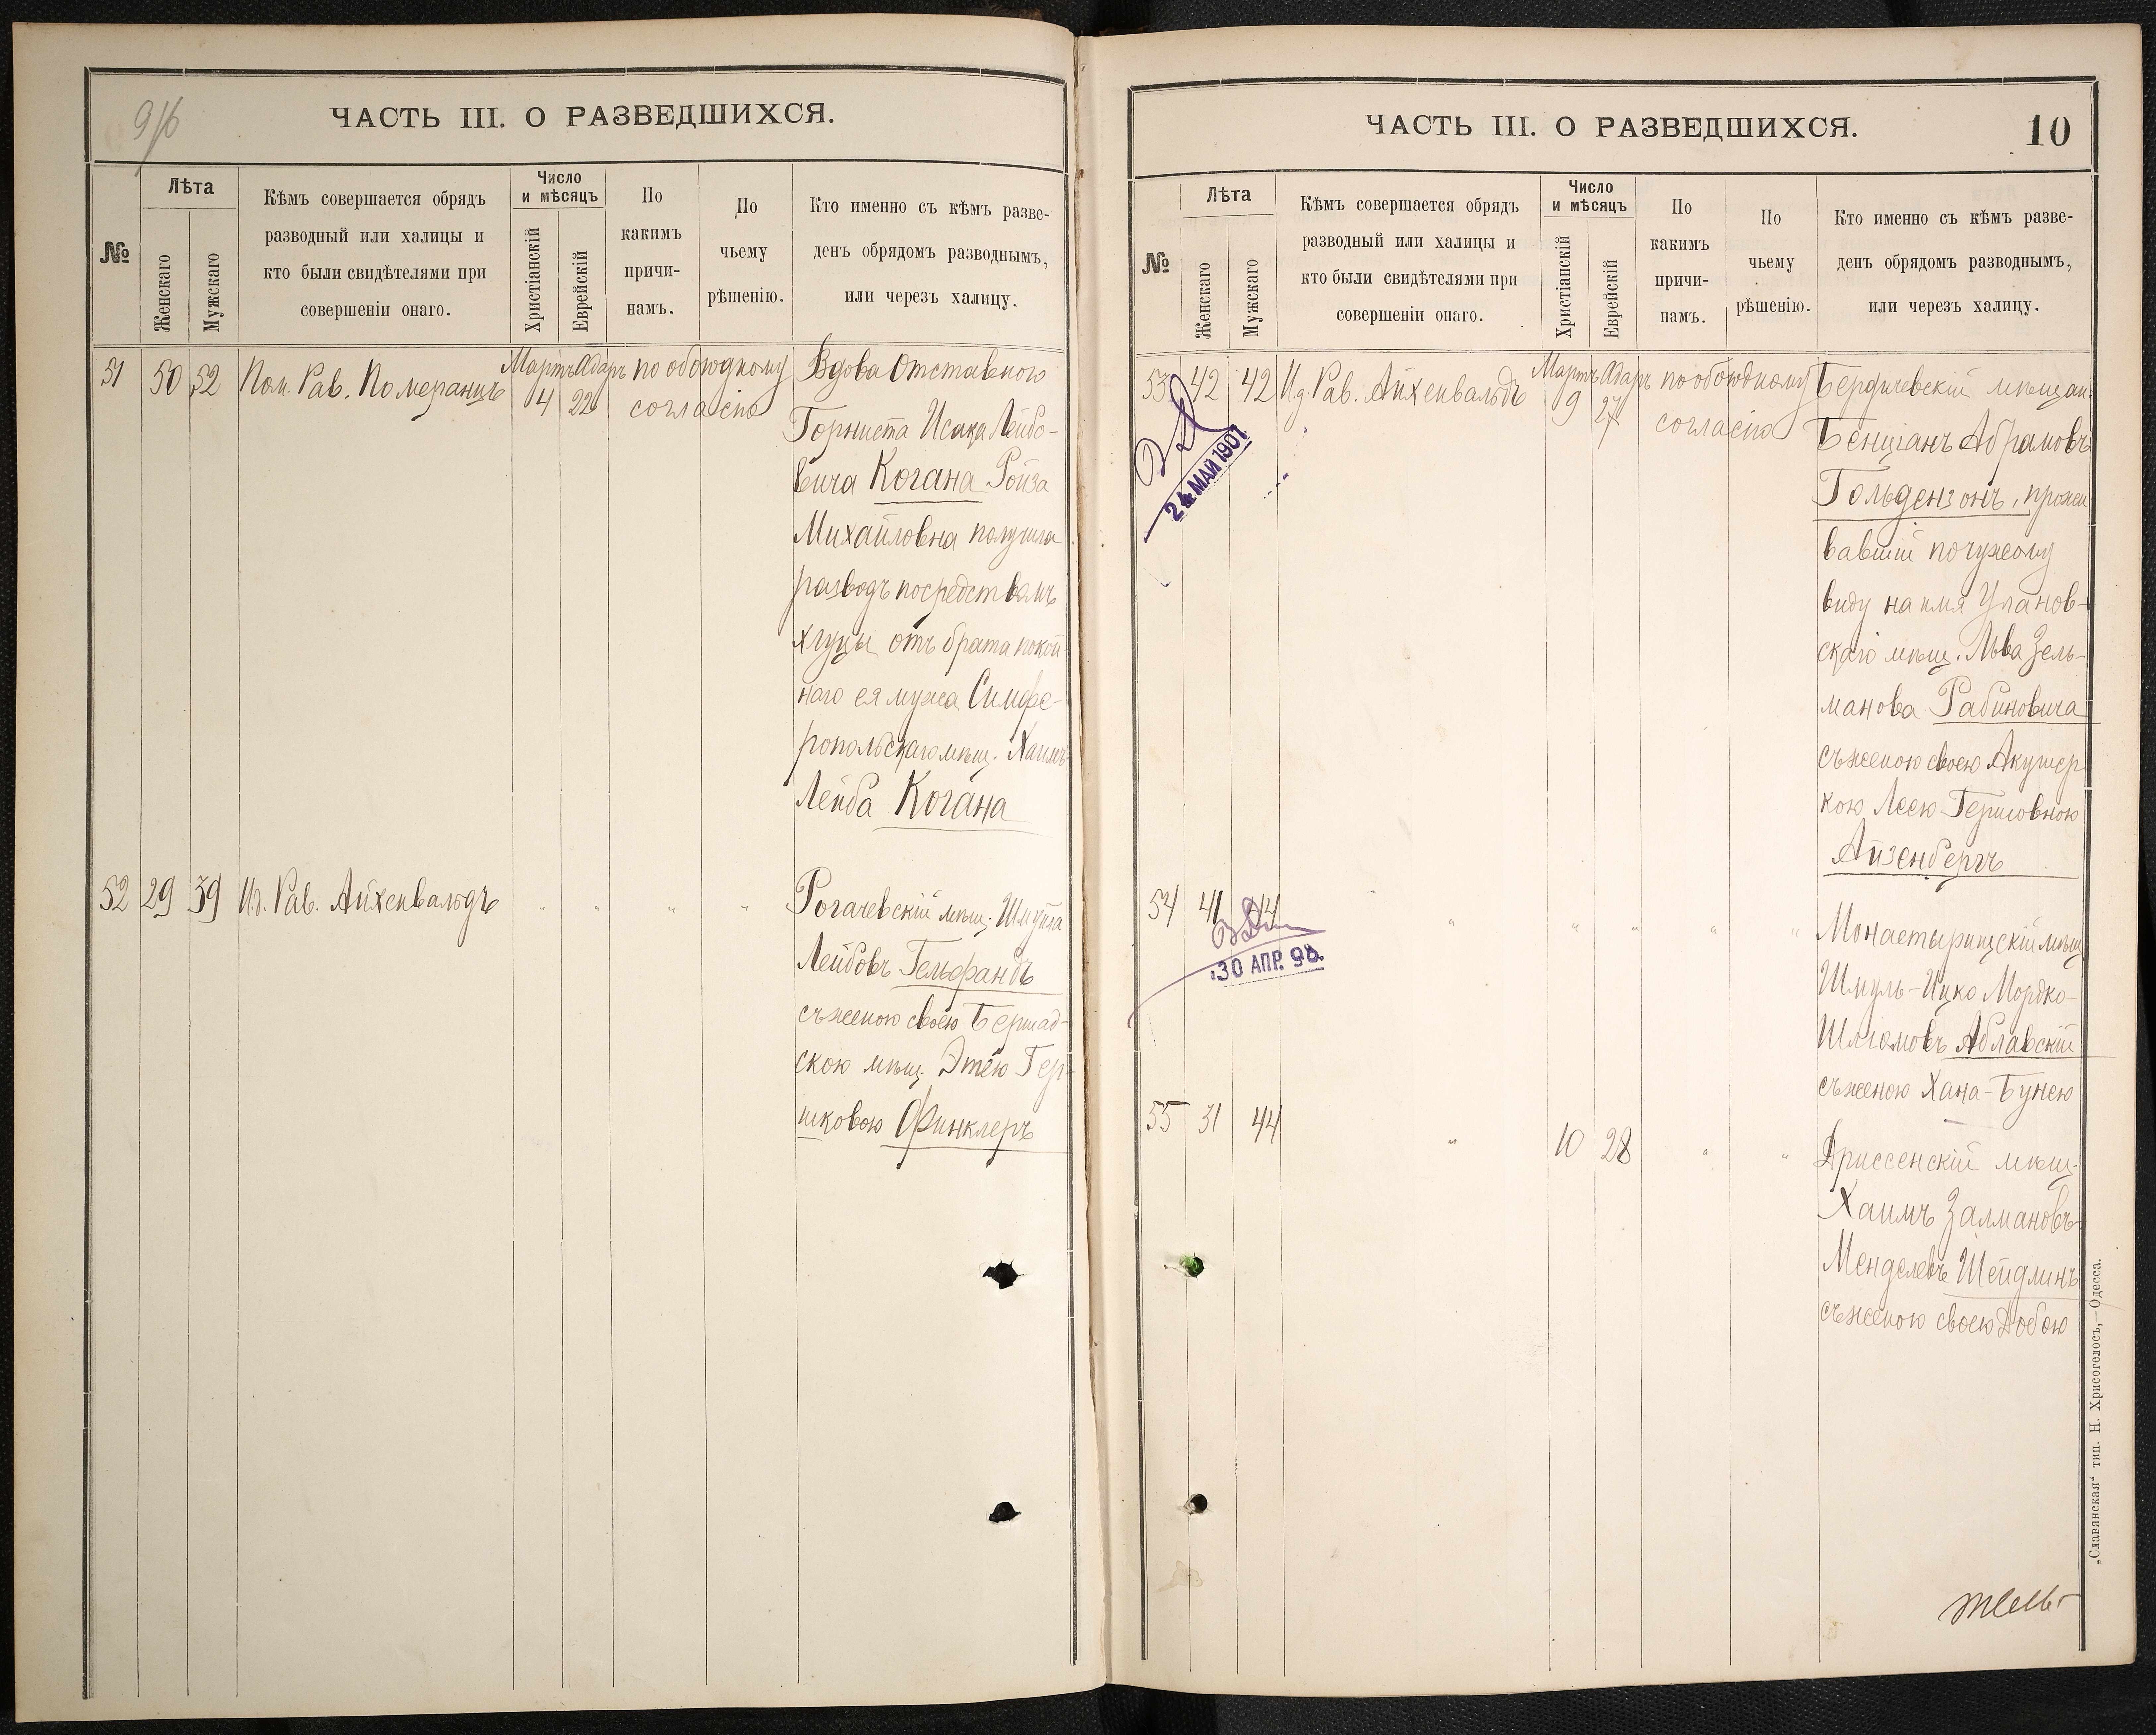 9/б
ЧАСТЬ III. О РАЗВЕДШИХСЯ.
№
Лѣта
Женскаго
Мужскаго
Кѣмъ совершается обрядъ
разводный или халицы и
кто были свидѣтелями при
совершеніи онаго.
Число
и мѣсяцъ
Христіанскій
Еврейскій
По
какимъ
причи-
намъ.
По
чьему
рѣшенію.
Кто именно съ кѣмъ разве-
денъ обрядомъ разводнымъ,
или черезъ халицу.
51 50 52 Пом. Рав. Померанцъ Мартъ 4 Адаръ 22 по обоюдному
согласію
Вдова Отставного
Горниста Исака Лейбо-
вича Когана Ройза
Михайловна получила
разводъ посредствомъ
хлуцы отъ брата покой-
наго ея мужа Симфе-
ропольскаго мѣщ. Хаимъ
Лейба Когана
52 29 39 И.д. Рав. Айхенвальдъ " " " "
Рогачевскій мѣщ. Шмуйла
Лейбовъ Гельфандъ
съ женою своею Бершад-
скою мѣщ. Этею Гер-
шковою Финклеръ
ЧАСТЬ III. О РАЗВЕДШИХСЯ.
10
№
Лѣта
Женскаго
Мужскаго
Кѣмъ совершается обрядъ
разводный или халицы и
кто были свидѣтелями при
совершеніи онаго.
Число
и мѣсяцъ
Христіанскій
Еврейскій
По
какимъ
причи-
намъ.
По
чьему
рѣшенію.
Кто именно съ кѣмъ разве-
денъ обрядомъ разводнымъ,
или черезъ халицу.
53 42 42 И.д. Рав. Айхенвальдъ Мартъ 9 Адаръ 27 по обоюдному
согласію
24 МАЙ 1907
Бердичевскій мѣщан.
Бенціанъ Абрамовъ
Гольдензонъ, прожи
вавшій по чужому
виду на имя Улановѣ-
скаго мѣщ. Льва Зель-
манова Рабиновича
съ женою своею Акушер
кою Леею Гершовною
Айзенбергъ
54 41 44 " " " " "
30 АПР. 98.
Монастырищскій мѣщ
Шмуль-Ицко Мордко-
Шліомовъ Аблавскій
съ женою Хана-Бунею
55 31 44 " 10 28 " "
Дриссенскій мѣщ.
Хаимъ Залмановъ-
Менделевъ Шейдлинъ
съ женою своею Добою
„Славянская“ тип. Н. Хрисогелосъ,—Одесса.